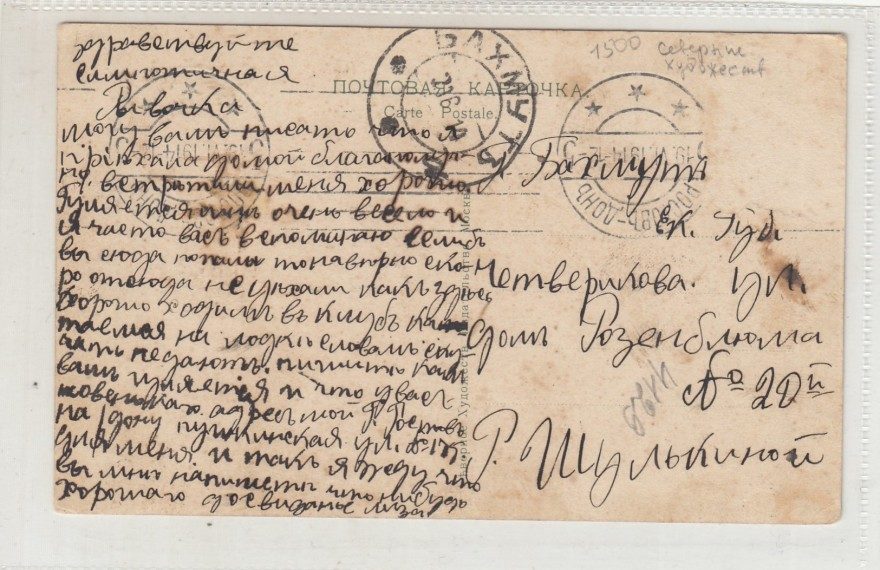 здравствуйте
симпатичная
Ривочка
могу вамъ писать что я
приѣхала домой благополуч-
но. встретили меня хорошо.
Гуляется мнѣ очень весело и
я часто васъ вспоминаю если бъ
вы сюда попали то навѣрно ско-
ро отсюда не уѣхали какъ здѣсь
хорошо ходимъ въ клубъ ката
таемся на лодкѣ словамъ ску
чать не даютъ. пишите какъ
вамъ гуляется и что у васъ
новенькаго. адресъ мой г. Ростовъ
на /дону пушкинская ул. № 175
для меня и такъ я жду что
вы мнѣ напишете что нибудь
хорошаго досвиданье лиза
ПОЧТОВАЯ КАРТОЧКА.
Carte Postale.
БАХМУТЪ
19.VI.1914.12
РОСТОВЪ-ДОНЪ
1500
северные
художеств
г. Бахмутъ
Ек. Губ
Четверикова. ул.
домъ Розенблюма
№ 20й
Р. Шулькиной